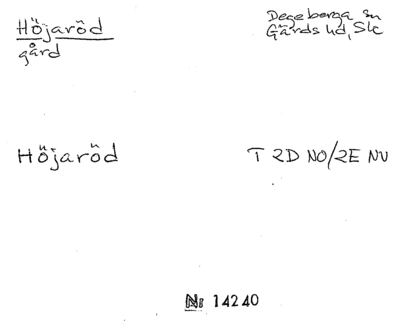 Höjaröd
gård
Degeberga sn
Gärds hd, Sk
Höjaröd
T 2D NO/2E NV
Nr 14240